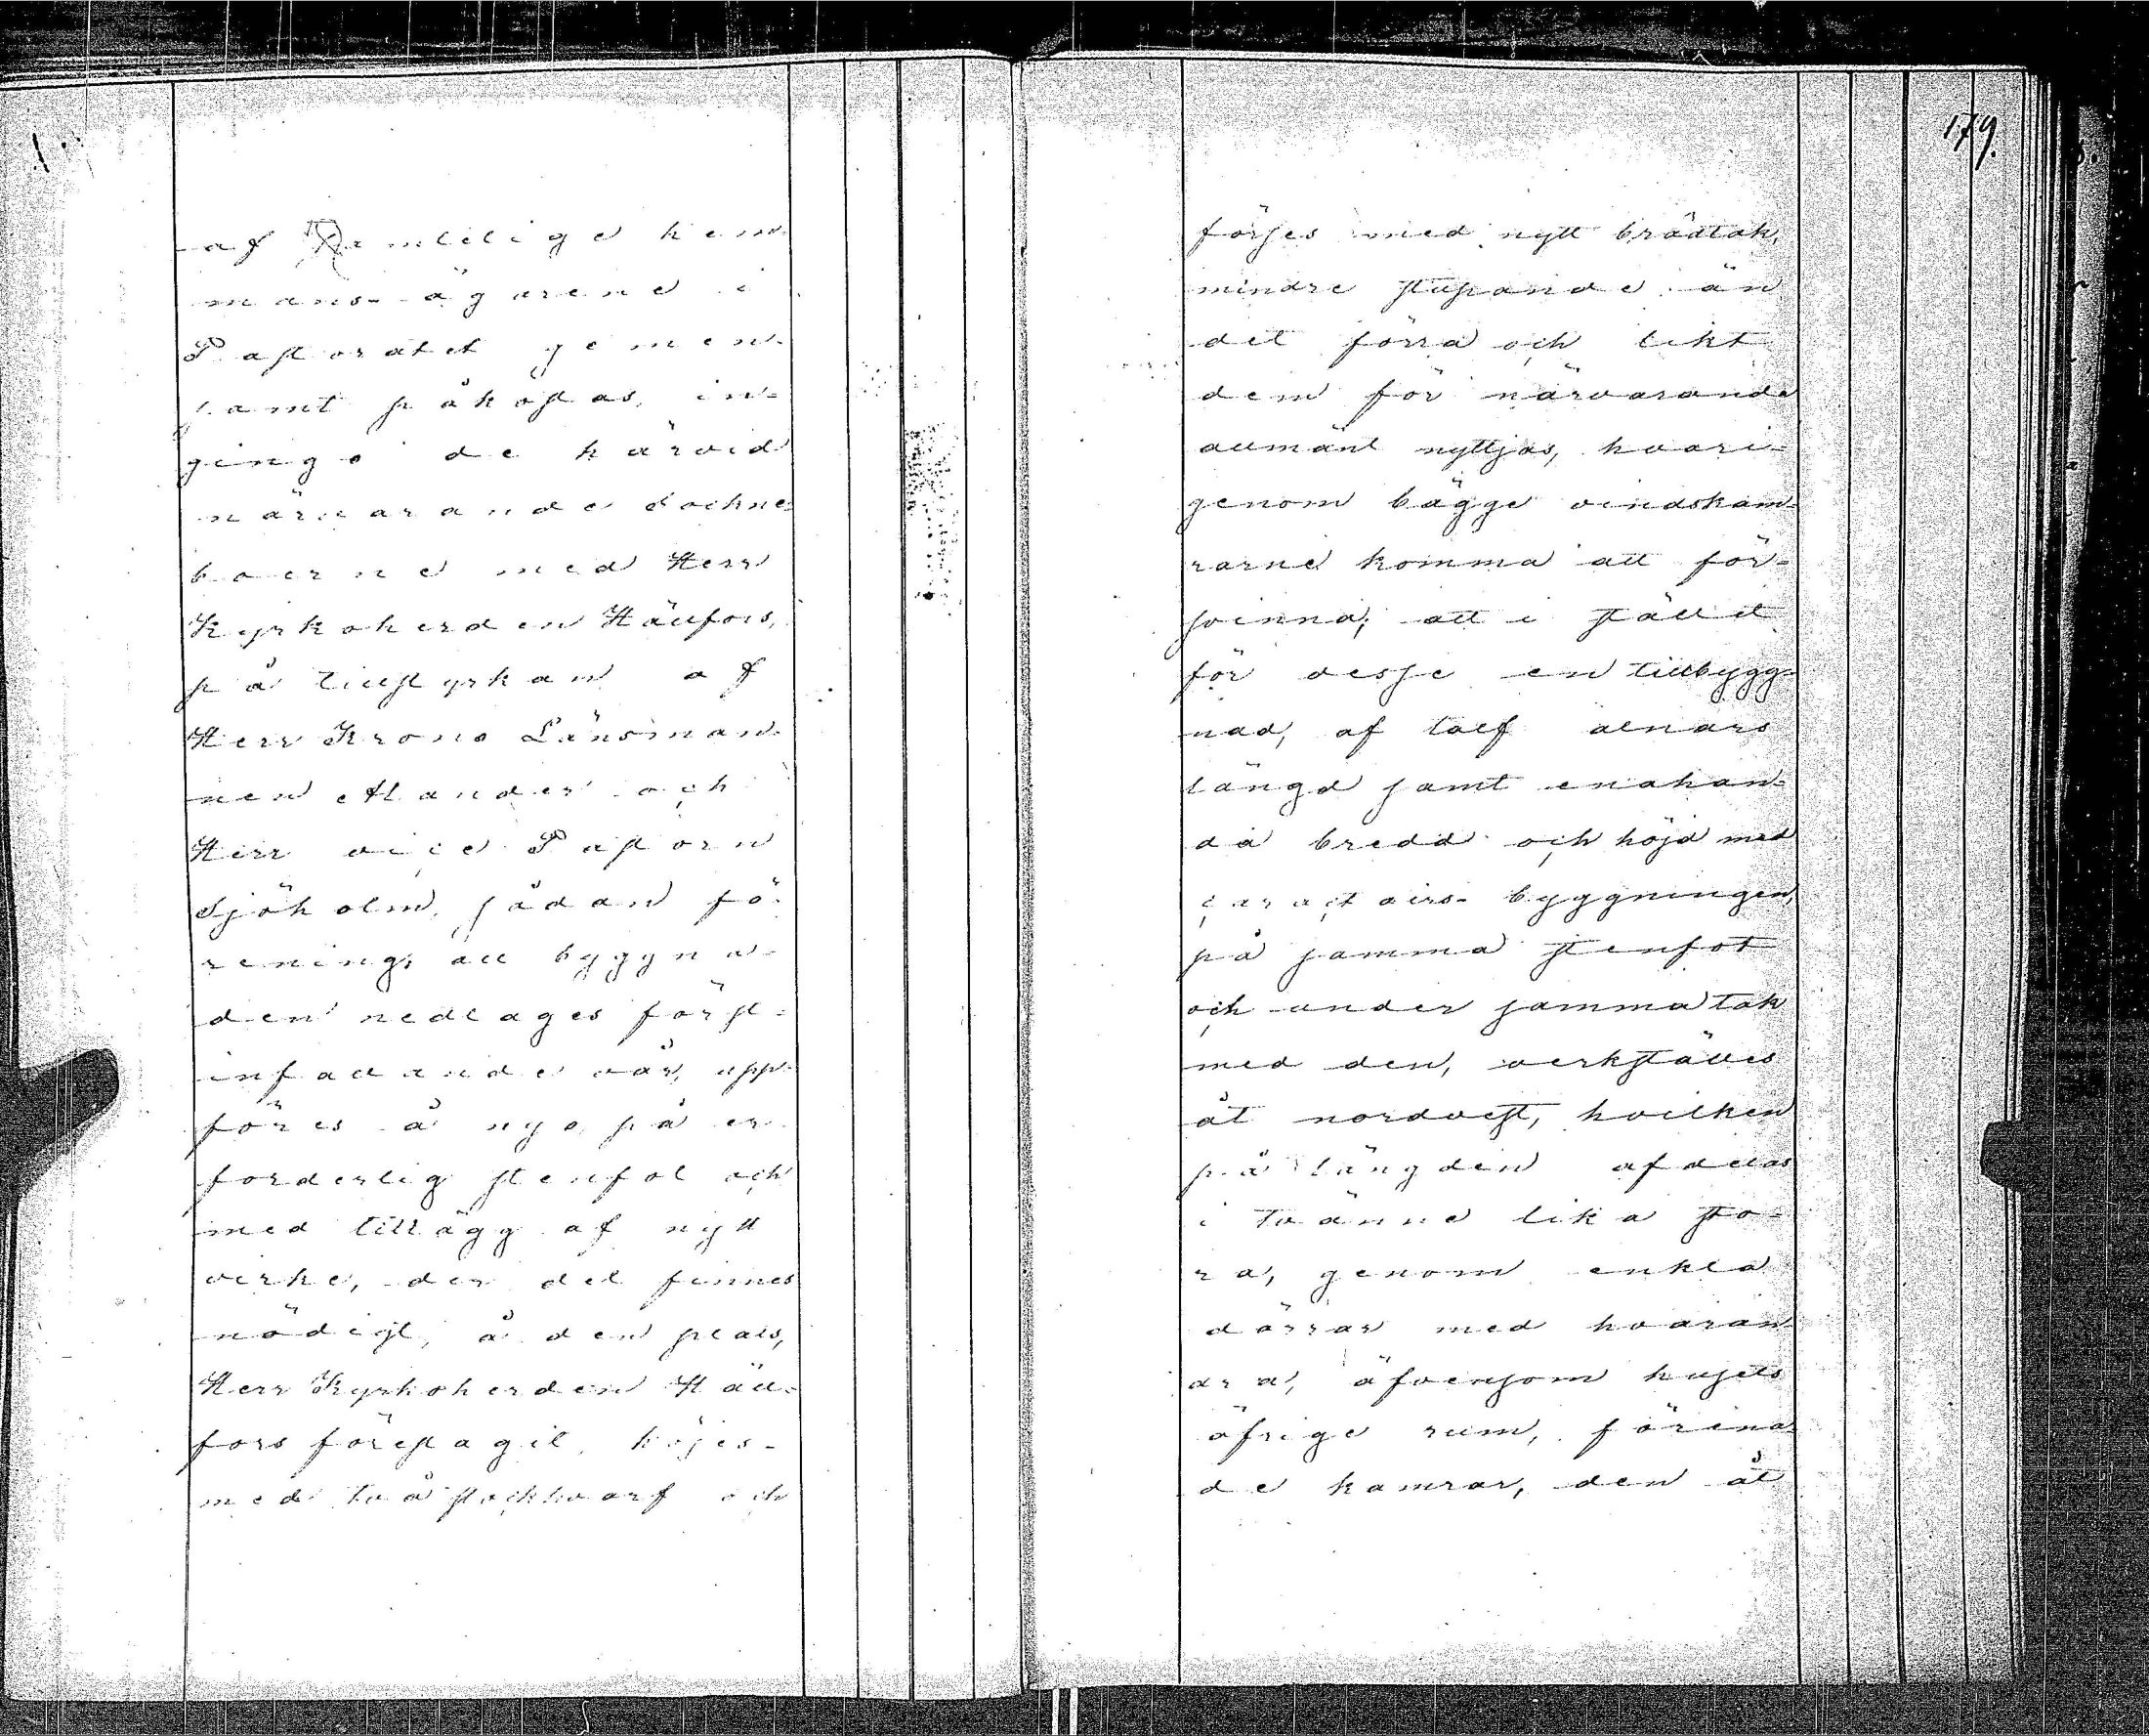 af samtelige hem-
mans-ägarene i
Pastoratet gemen-
samt påkostas, in-
gingo de härvid
närvarande Sockne-
boerne med Herr
Kyrkoherden Hällfors,
på tillstyrkan af
Herr Krono Länsman-
nen Alander och
Herr vice Pastorn
Sjöholm, sådan fö-
rening, att byggna-
den nedtages först-
infallande vår, upp-
föres å nyo på er-
forderlig stenfot och
med tillägg af nytt
virke, der det finnes
nödigt, å den plats,
Herr Kyrkoherden Häll-
fors föreslagit, höjes
med två stockhvarf och
179.
förses med nytt brädtak,
mindre stupande än
det förra och likt
dem för närvarande
allmänt nyttjas, hvari-
genom bägge vindskam-
rarne komma att för-
svinna; att i stället
för desse en tillbygg-
nad, af tolf alnars
längd samt enahan-
da bredd och höjd med
caractairs-byggningen,
på samma stenfot
och under samma tak
med den, verkställes
åt nordvest, hvilken
på längden afdelas
i tvänne lika sto-
ra, genom enkla
dörrar med hvaran-
dra, äfvensom husets
öfrige rum, förena-
de kamrar, den åt